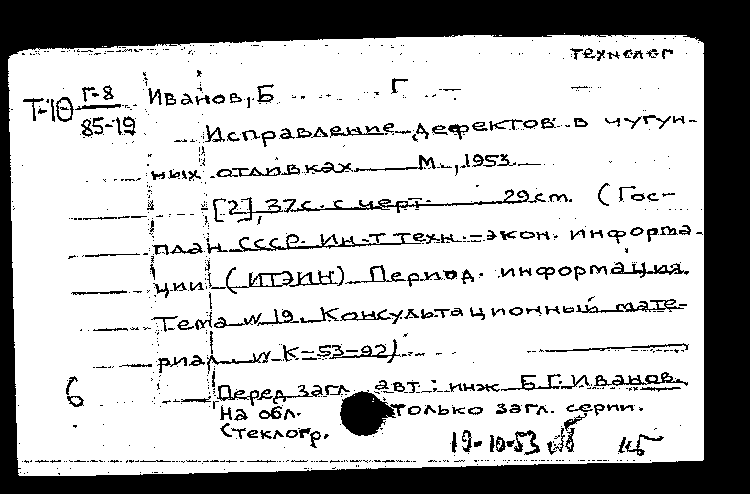 технолог
Т-10 Г-8 Иванов, Б Г
85-19 Исправление дефектов в чугун-
ных отливках М., 1953
[2], 37с. с черт. 29см. (Гос-
план СССР. Ин-т техн.-экон. информа-
ции (ИТЭИН) Период. информация.
Тема № 19. Консультационный мате-
риал. № К-53-92)
6 Перед загл. авт: инж Б.Г. Иванов.
На обл. только загл. серии.
Стеклогр.
19-10-53